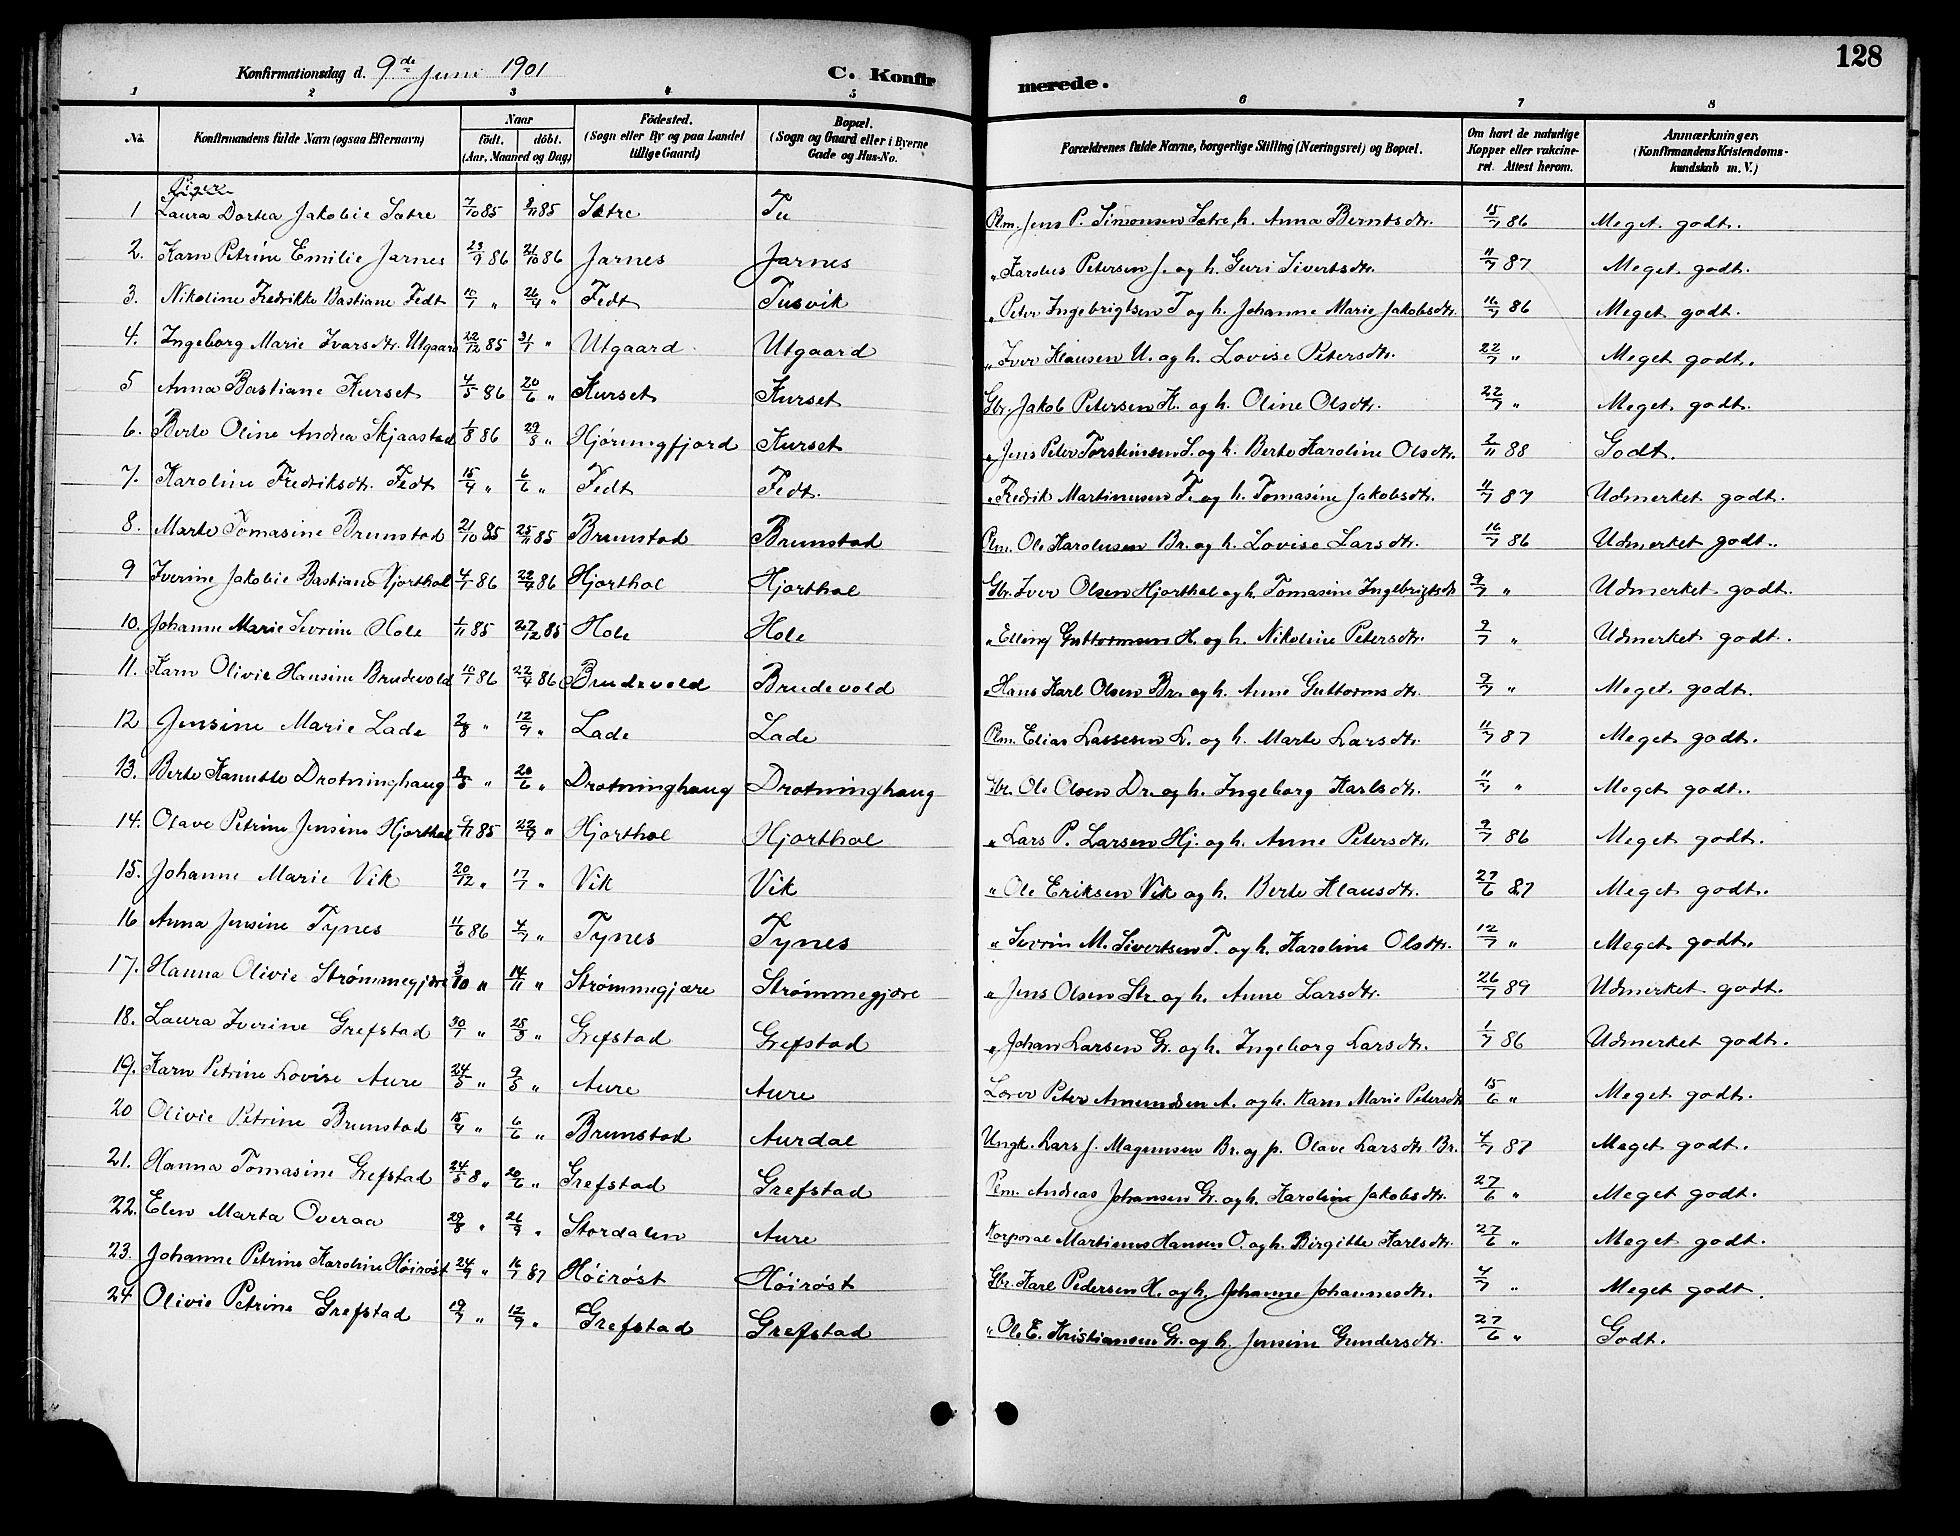 128
Konfirmationsdag d. 9de Juni 1901 C. Konfirmerede.
1 2 3 4 5 6 7 8
No. Konfirmandens fulde Navn (ogsaa Efternavn) Naar født. døbt. (Aar, Maaned og Dag) Fødested. (Sogn eller By og paa Landet tillige Gaard) Bopæl. (Sogn og Gaard eller i Byerne Gade og Hus-No. Forældrenes fulde Navne, borgerlige Stilling (Næringsvei) og Bopæl. Om havt de naturlige Kopper eller vakcineret. Attest herom. Anmærkninger. (Konfirmandens Kristendomskundskab m. V.)
Piger
1 Laura Dortea Jakobie Sætre 7/10 85 8/11 85 Sætre Tu Plm. Jens P. Simonsen Sætre, h. Anna Berntsdtr. 15/7 86 Meget godt.
2. Karn Petrine Emilie Jarnes 23/9 86 21/10 86 Jarnes Jarnes " Karolus Petersen J. og h. Guri Sivertsdtr. 11/7 87 Meget godt.
3. Nikoline Fredrikke Bastiane Fedt 10/1 " 26/4 " Fedt Tusvik " Peter Ingebrigtsen T og h. Johanne Marie Jakobsdtr. 16/7 86 Meget godt.
4. Ingeborg Marie Ivarsdtr. Utgaard 22/12 85 31/1 " Utgaard Utgaard " Iver Klausen U. og h. Lovise Petersdtr. 22/7 " Meget godt.
5 Anna Bastiane Kurset 4/5 86 20/6 " Kurset Kurset Gbr. Jakob Petersen K. og h. Oline Olsdtr. 22/7 " Meget godt.
6. Berte Oline Andrea Skjaastad 1/8 86 29/8 " Hjørungfjord Kurset " Jens Peter Torsteinsen S. og h. Berte Karoline Olsdtr. 2/11 88 Godt.
7. Karoline Fredriksdtr. Fedt 15/4 " 6/6 " Fedt Fedt. " Fredrik Martinusen F. og h. Tomasine Jakobsdtr. 11/7 87 Udmerket godt.
8. Marte Tomasine Brunstad 21/10 85 25/11 85 Brunstad Brunstad Plm. Ole Karolusen Br. og h. Lovise Larsdtr. 16/7 86 Udmerket godt.
9 Iverine Jakobie Bastiane Hjorthol 4/1 86 22/4 86 Hjorthol Hjorthol Gbr. Iver Olsen Hjorthol og h. Tomasine Ingebrigtsdtr 9/7 " Udmerket godt.
10. Johanne Marie Sevrine Hole 1/11 85 27/12 85 Hole Hole " Elling Guttormsen H. og h. Nikoline Petersdtr. 9/7 " Udmerket godt.
11. Karn Olivie Hansine Brudevold 10/1 86 22/4 86 Brudevold Brudevold " Hans Karl Olsen Br. og h. Anne Guttormsdtr. 9/7 " Meget godt.
12 Jensine Marie Lade 2/8 " 12/9 " Lade Lade Plm. Elias Lassesen L. og h. Marte Larsdtr. 11/7 87 Meget godt.
13. Berte Kanutte Drotninghaug 8/5 " 20/6 " Drotninghaug Drotninghaug Gbr. Ole Olsen Dr. og h. Ingeborg Karlsdtr. 11/7 " Meget godt.
14. Olave Petrine Jensine Hjorthol 9/11 85 22/4 " Hjorthol Hjorthol " Lars P. Larsen Hj. og h. Anne Petersdtr. 9/7 86 Meget godt.
15. Johanne Marie Vik 20/12 " 17/1 " Vik Vik " Ole Eriksen Vik og h. Berte Klausdtr. 27/6 87 Meget godt.
16 Anna Jensine Tynes 11/6 86 4/7 " Tynes Tynes " Sevrin M. Sivertsen T. og h. Karoline Olsdtr. 12/7 " Meget godt.
17. Hanna Olivie Strømmegjære 3/10 " 14/11 " Strømmegjære Strømmegjære " Jens Olsen Str. og h. Anne Larsdtr. 26/7 89 Udmerket godt.
18. Laura Iverine Grefstad 30/1 " 28/3 " Grefstad Grefstad " Johan Larsen Gr. og h. Ingeborg Larsdtr. 1/7 86 Udmerket godt.
19. Karn Petrine Lovise Aure 24/3 " 9/5 " Aure Aure Lærer Peter Amundsen A. og h. Karn Marie Petersdtr 15/6 " Meget godt.
20 Olivie Petrine Brunstad 15/4 " 6/6 " Brunstad Aurdal Ungk. Lars J. Magnusen Br. og p. Olave Larsdtr. Br. 4/7 87 Meget godt.
21. Hanna Tomasine Grefstad 24/5 8 " 20/6 " Grefstad Grefstad Plm. Andreas Johansen Gr. og h. Karoline Jakobsdtr. 27/6 " Meget godt.
22. Elen Marta Overaa 29/8 " 26/9 " Stordalen Aure Korporal Martinus Hansen O. og h. Birgitte Karlsdtr. 27/6 " Meget godt.
23. Johanne Petrine Karoline Høirøst 24/9 " 16/1 87 Høirøst Høirøst Gbr. Karl Pedersen H. og h. Johanne Johannesdtr. 4/7 " Meget godt.
24 Olivie Petrine Grefstad 19/7 " 12/9 " Grefstad Grefstad " Ole E. Kristiansen Gr. og h. Jensine Gundersdtr. 27/6 " Godt.